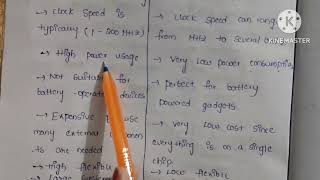 → clock speed is
typically (1 - 200 MHz)
→ High power usage
→ Not suitable for
battery-operated devices
→ Expensive because
many external
is are needed
→ High flexibi
→ Large
→ clock speed can
from MHz to several
→ Very low power consumption
→ perfect for battery
powered gadgets.
→ Very low cost since
everything is on a single
chip
→ Low flexibi
KINEMASTER